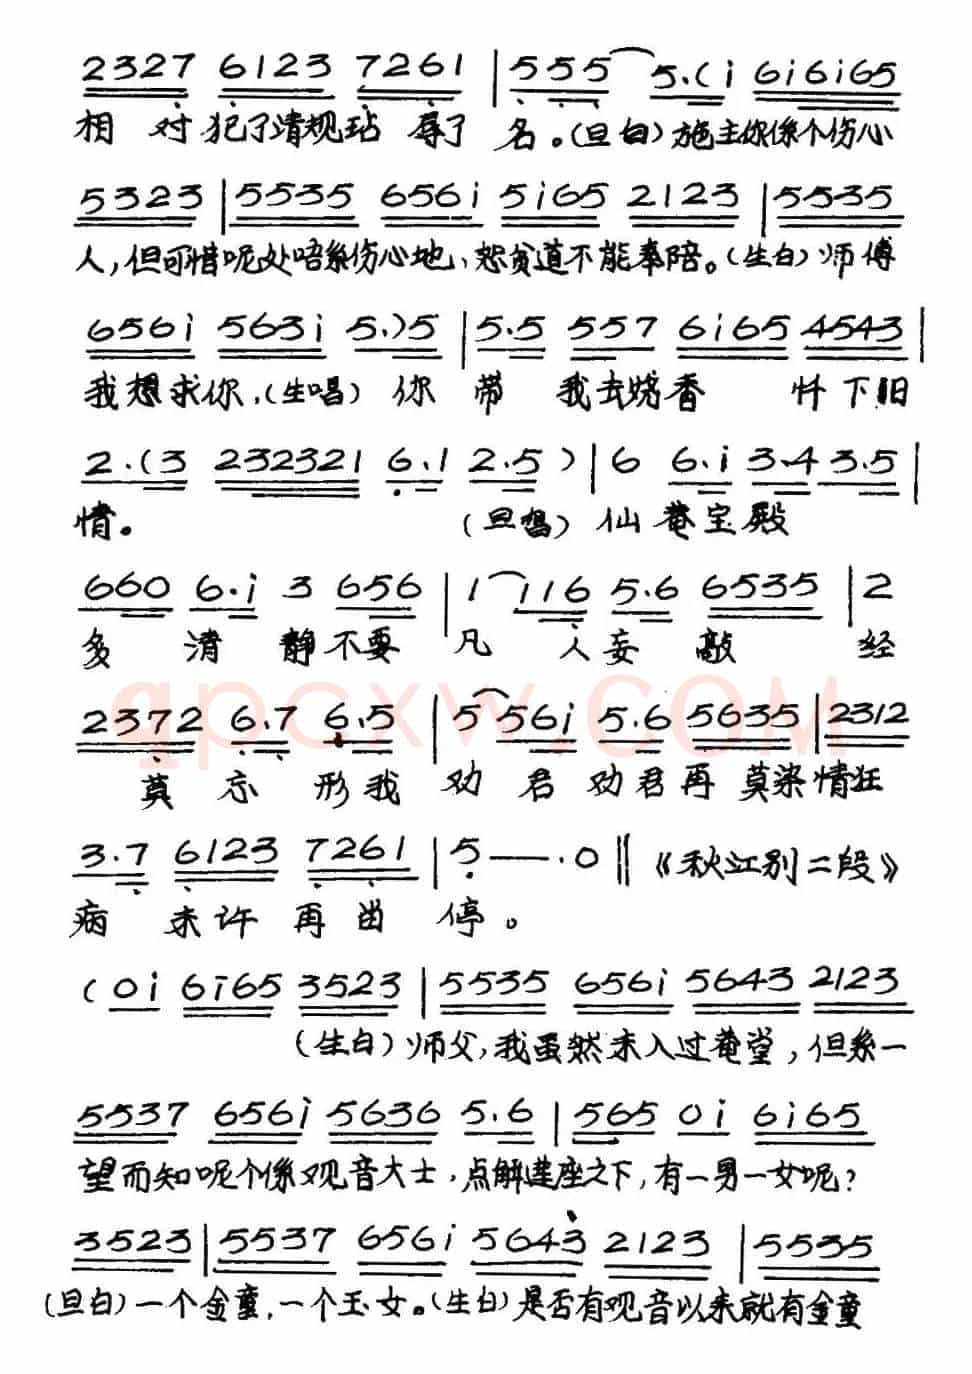 2327 6123 7261 | 555 5.(i 6i6i65
相 对 犯了清规玷 辱了 名。(旦白)施主你係个伤心
5323 | 5535 656i 5i65 2123 | 5535
人,但可惜呢处唔系伤心地、恕贫道不能奉陪。(生白)师傅
656i 563i 5.)5 | 5.5 557 6i65 4543 |
我想求你,(生唱) 你 带 我去烧香 忏下旧
2.(3 232321 6.1 2.5 ) | 6 6.i 3.4 3.5 |
情。 (旦唱) 仙 菴宝殿
660 6.i 3 656 | 1 i16 5.6 6535 | 2
多 清 静不要 凡 人妄 敲 经
qpcxw.COM
2372 6.7 6.5 | 5 56i 5.6 5635 | 2312
莫 忘 形我 劝 君劝君再 莫染情狂
3.7 6123 7261 | 5 — . 0 || 《秋江别二段》
病 未许 再曲 停。
(0i 6i65 3523 | 5535 656i 5643 2123
(生白)师父,我虽然未入过菴堂,但系一
5537 656i 5636 5.6 | 565 0i 6i65
望而知呢个係观音大士,点解莲座之下,有一男一女呢?
3523 | 5537 656i 5643 2123 | 5535
(旦白)一个金童,一个玉女。(生白)是否有观音以来就有金童